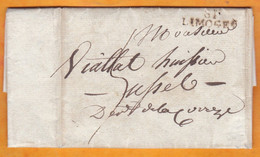 81
LIMOGES
Monsieur
Viallat huissier
— Ussel —
Dept de la Correze